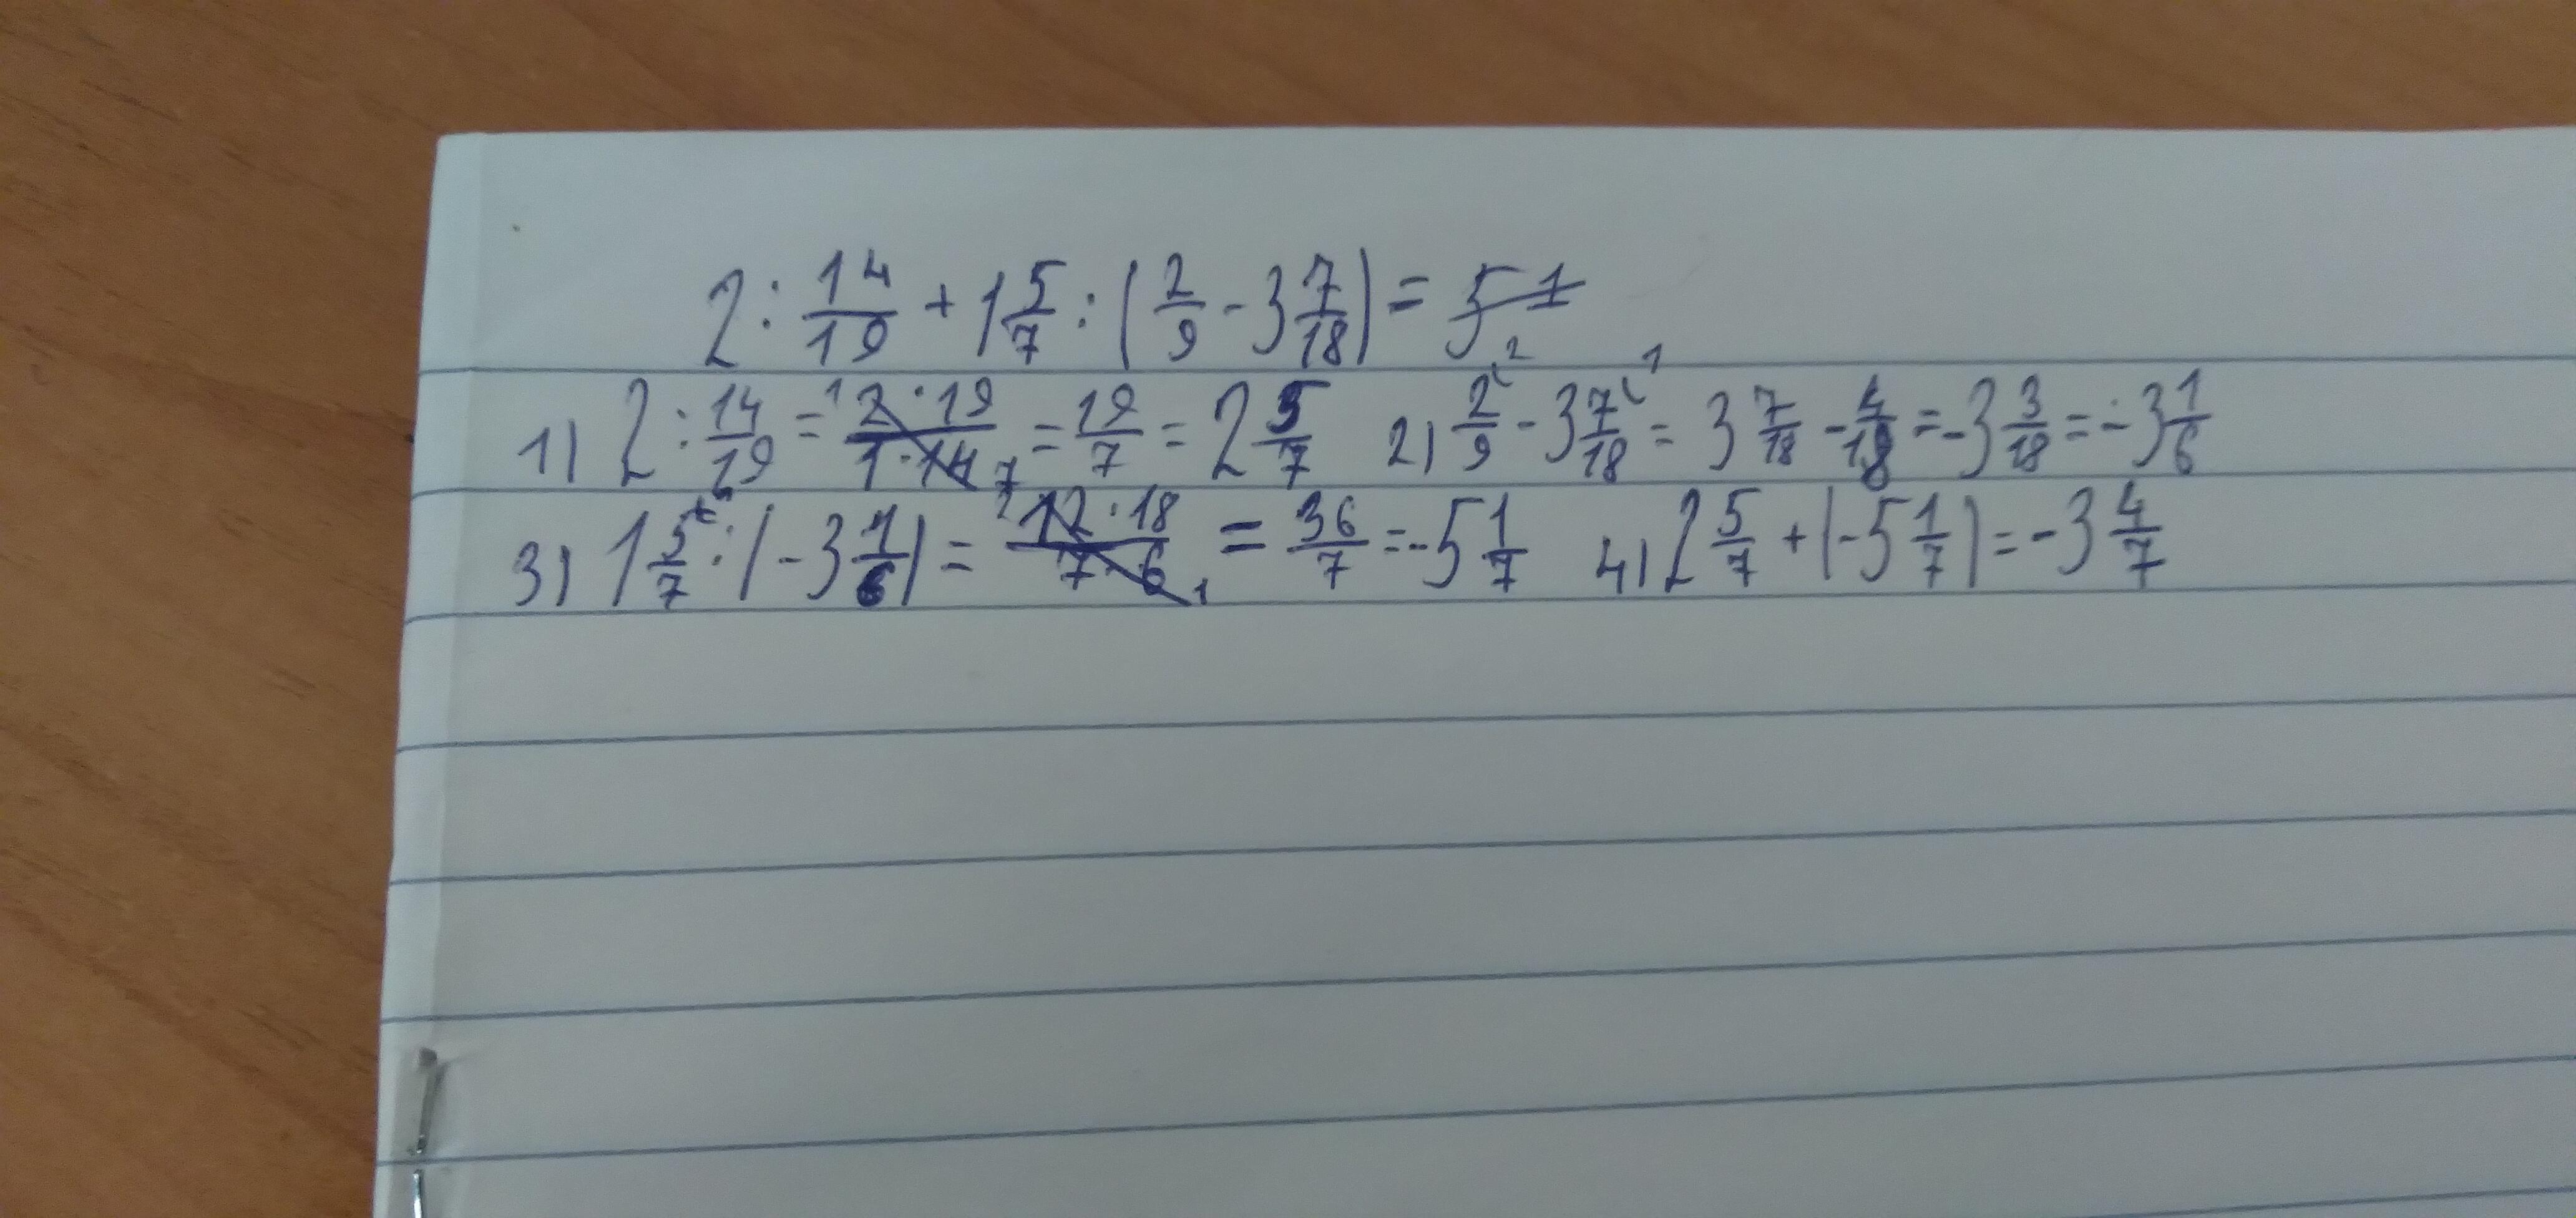 2 : 14/19 + 1 5/7 : (2/9 - 3 7/18) = 5 1
1) 2 : 14/19 = 2 · 19/1 · 14 = 19/7 = 2 5/7 2) 2/9 - 3 7/18 = 3 7/18 - 4/18 = -3 3/18 = -3 1/6
3) 1 5/7 : (-3 1/6) = 12 · 18/7 · 6 = 36/7 = -5 1/7 4) 2 5/7 + (-5 1/7) = -3 4/7